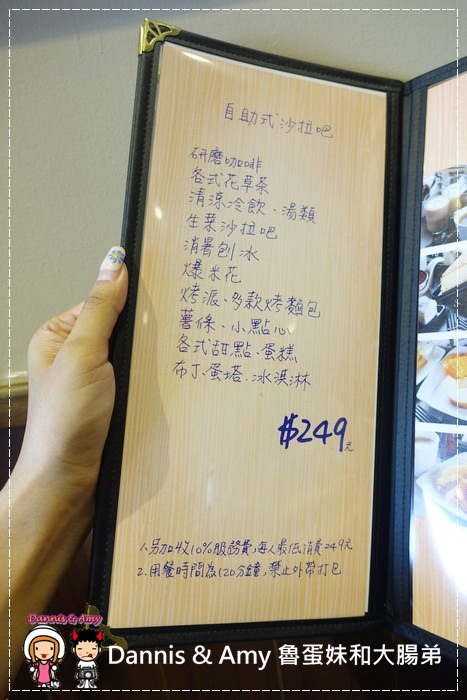 自助式沙拉吧
研磨咖啡
各式花草茶
清涼冷飲、湯類
生菜沙拉吧
消暑刨冰
爆米花
烤派、多款烤麵包
薯條、小點心
各式甜點、蛋糕
布丁、蛋塔、冰淇淋
$249元
1.另加收10%服務費,每人最低消費249元
2.用餐時間為120分鐘,禁止外帶打包
Dannis & Amy
Dannis & Amy 魯蛋妹和大腸弟